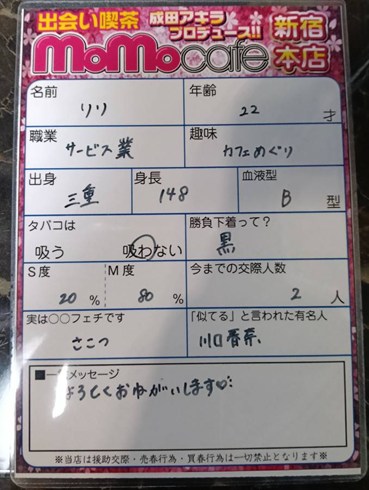 出会い喫茶 成田アキラ
プロデュース!!
新宿
本店
MoMocafe
名前 年齢
りり 22才
職業 趣味
サービス業 カフェめぐり
出身 身長 血液型
三重 148 B型
タバコは 勝負下着って?
吸う 吸わない 黒
S度 M度 今までの交際人数
20% 80% 2人
実は○○フェチです 「似てる」と言われた有名人
さこつ 川口春奈
■一言メッセージ
よろしくおねがいします♡
※当店は援助交際・売春行為・買春行為は一切禁止となります※